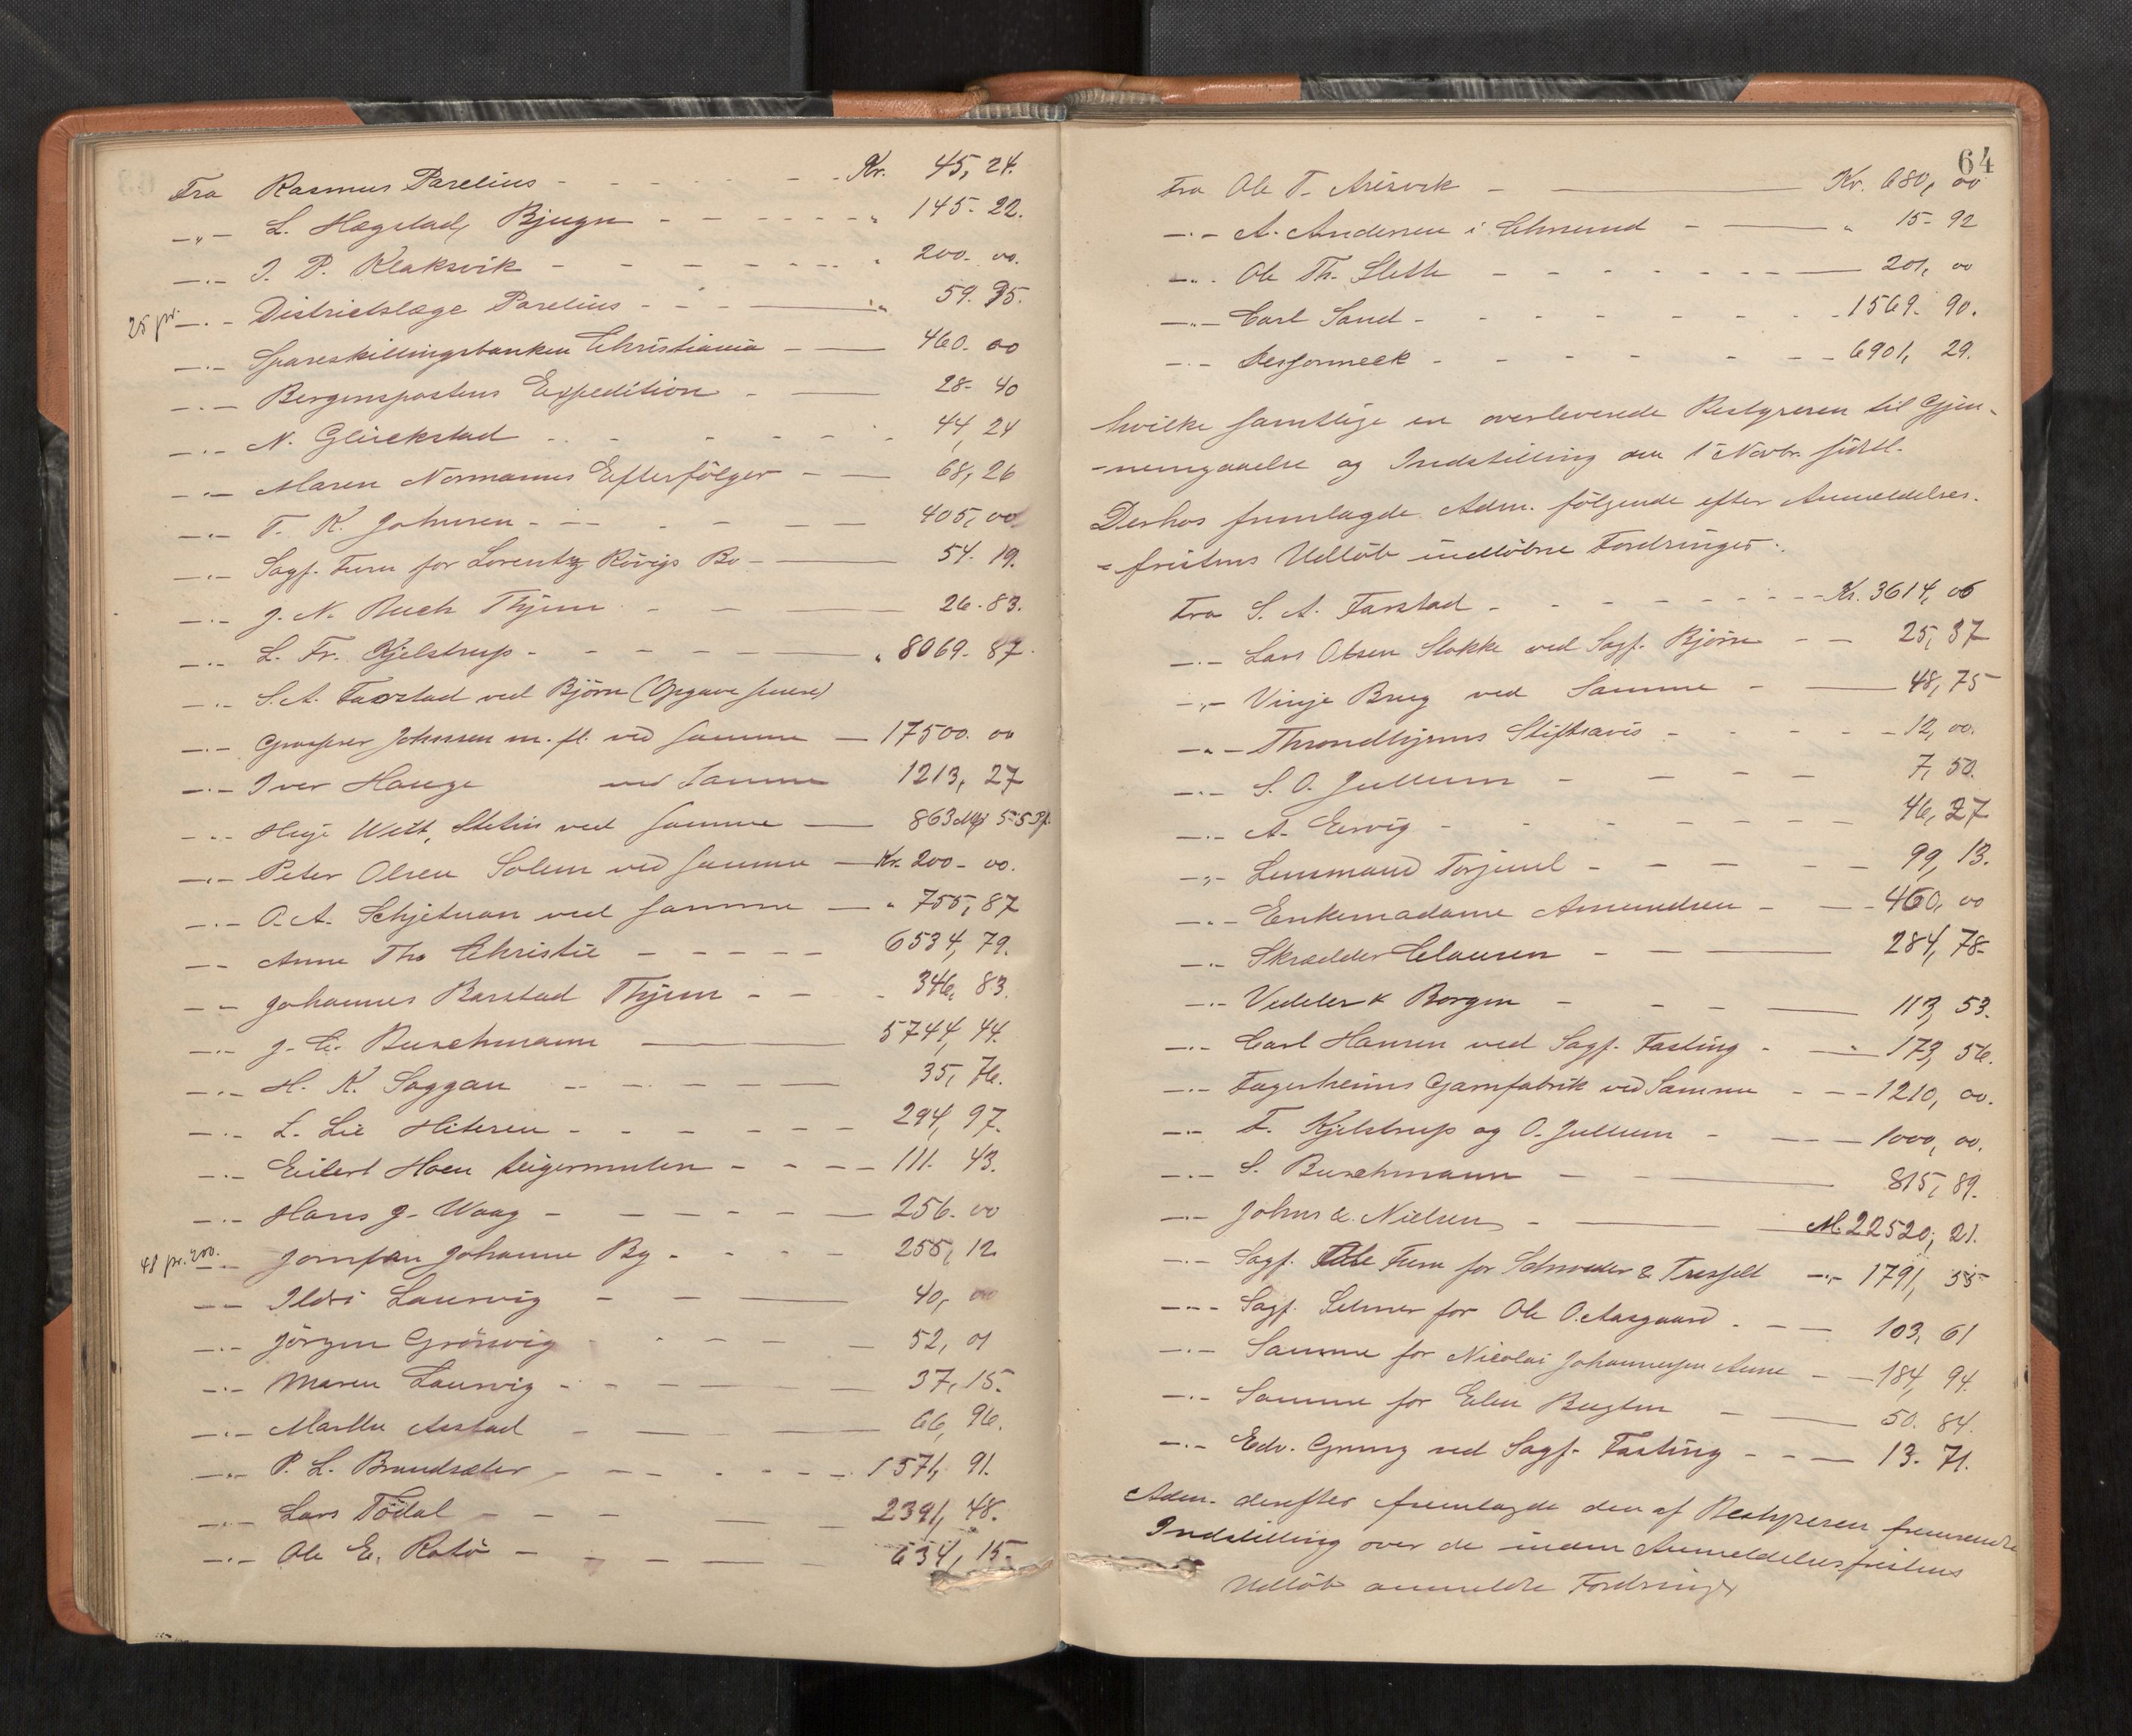 Fra Rasmus Parelius - Kr. 45,24.
-"- L. Hægstad, Bjugn - " 145-22.
-"- I. P. Klaksvik - " 200-00.
25 pr. -"- Districtslæge Parelius - " 59.95.
-"- Spareskillingsbanken Christiania - 460-00
-"- Bergenspostens Expedition - 28-40
-"- N. Glückstad - 44,24
-"- Maren Normanns Efterfölger - 68,26
-"- T. K. Johnsen - 405,00
-"- Sagf. Furu for Lorentz Rövigs Bo - 54.19.
-"- J. N. Buch Thjem - 26.83.
-"- L. Fr. Kjelstrup - " 8069-87.
-"- S. A. Farstad ved Björn (Opgave senere)
-"- Grosserer Johnsen m. fl. ved samme - 17500.00
-"- Iver Hauge ved Samme 1213,27
-"- Witt, Stetin ved samme - 863 Mk 55 Pf.
-"- Peter Olsen Solem ved samme - Kr. 200-00.
-"- O. A. Schjetnan ved samme - " 755,87
-"- Anne Tho Christie - 6534,79.
-"- Johannes Barstad Thjem - 346,83.
-"- J. C. Buschmann - 5744,44.
-"- H. K. Saggau - 35,76.
-"- L. Lie Hiteren - 294,97.
-"- Eilert Hoen - 111.43.
-"- Hans J. Waag - 256-00
48 pr. 200. -"- Jomfru Johanne By - 255,12
-"- Ildri Laurvig - 40,00
-"- Jörgen Grönvig - 52,01
-"- Maren Laurvig - 37,15.
-"- Marthe Aastad - 66,96.
-"- P. L. Brandsæter - 1571,91.
-"- Lars Tödal - 2391,48.
-"- Ole E. Rotö - 634,15.
64
Fra Ole T. Arisvik - Kr. 680,00
-"- A. Andersen i Chrsund - " 15-92
-"- Ole Th. Slette - 201,00
-"- Carl Sand - 1569.90.
-"- 6901,29.
hvilke samtlige ere overleverede Bestyreren til Gjen-
-nemgaaelse og Indstilling den 1ste Novbr. sidstl.
Derhos fremlagde Adm. følgende efter Anmeldelses-
-fristens Udlöb indlöbne Fordringer:
Fra S. A. Farstad - Kr. 3614,06
-"- Lars Olsen Slokke ved Sagf. Björn - 25,37
-"- Vinje Brug ved Samme - 48,75
-"- Throndhjems Stiftsavis - 12,00.
-"- S. O. Jullum - 7,50.
-"- A. Ervig - 46,27
-"- Lensmand Torjuul - 99,13.
-"- Enkemadame Amundsen - 460,00
-"- Skrædder Clausen - 284,78-
-"- Vedeler & Borgen - 113,53.
-"- Carl Hansen ved Sagf. Fasting - 173,56.
-"- Fagerheims Garnfabrik ved Samme - 1210,00.
-"- F. Kjelstrup og O. Jullum - 1000,00.
-"- S. Buschmann - 815,89.
-"- Johns & Nielsen - M. 22520,21.
-"- Sagf. Furu for Schrøder & Tresselt -"- 1791,55
-"- Sagf. Selmer for Ole O. Aasgaard - 103,61
-"- Samme for Nicolai Johannessen Aune - 184,94.
-"- Samme for Elen Bugten - 50.84.
-"- Edv. Grung ved Sagf. Fasting - 13.71.
Adm. derefter fremlagde den af Bestyreren fremsendte
Indstilling over de inden Anmeldelsesfristens
Udlöb anmeldte Fordringer